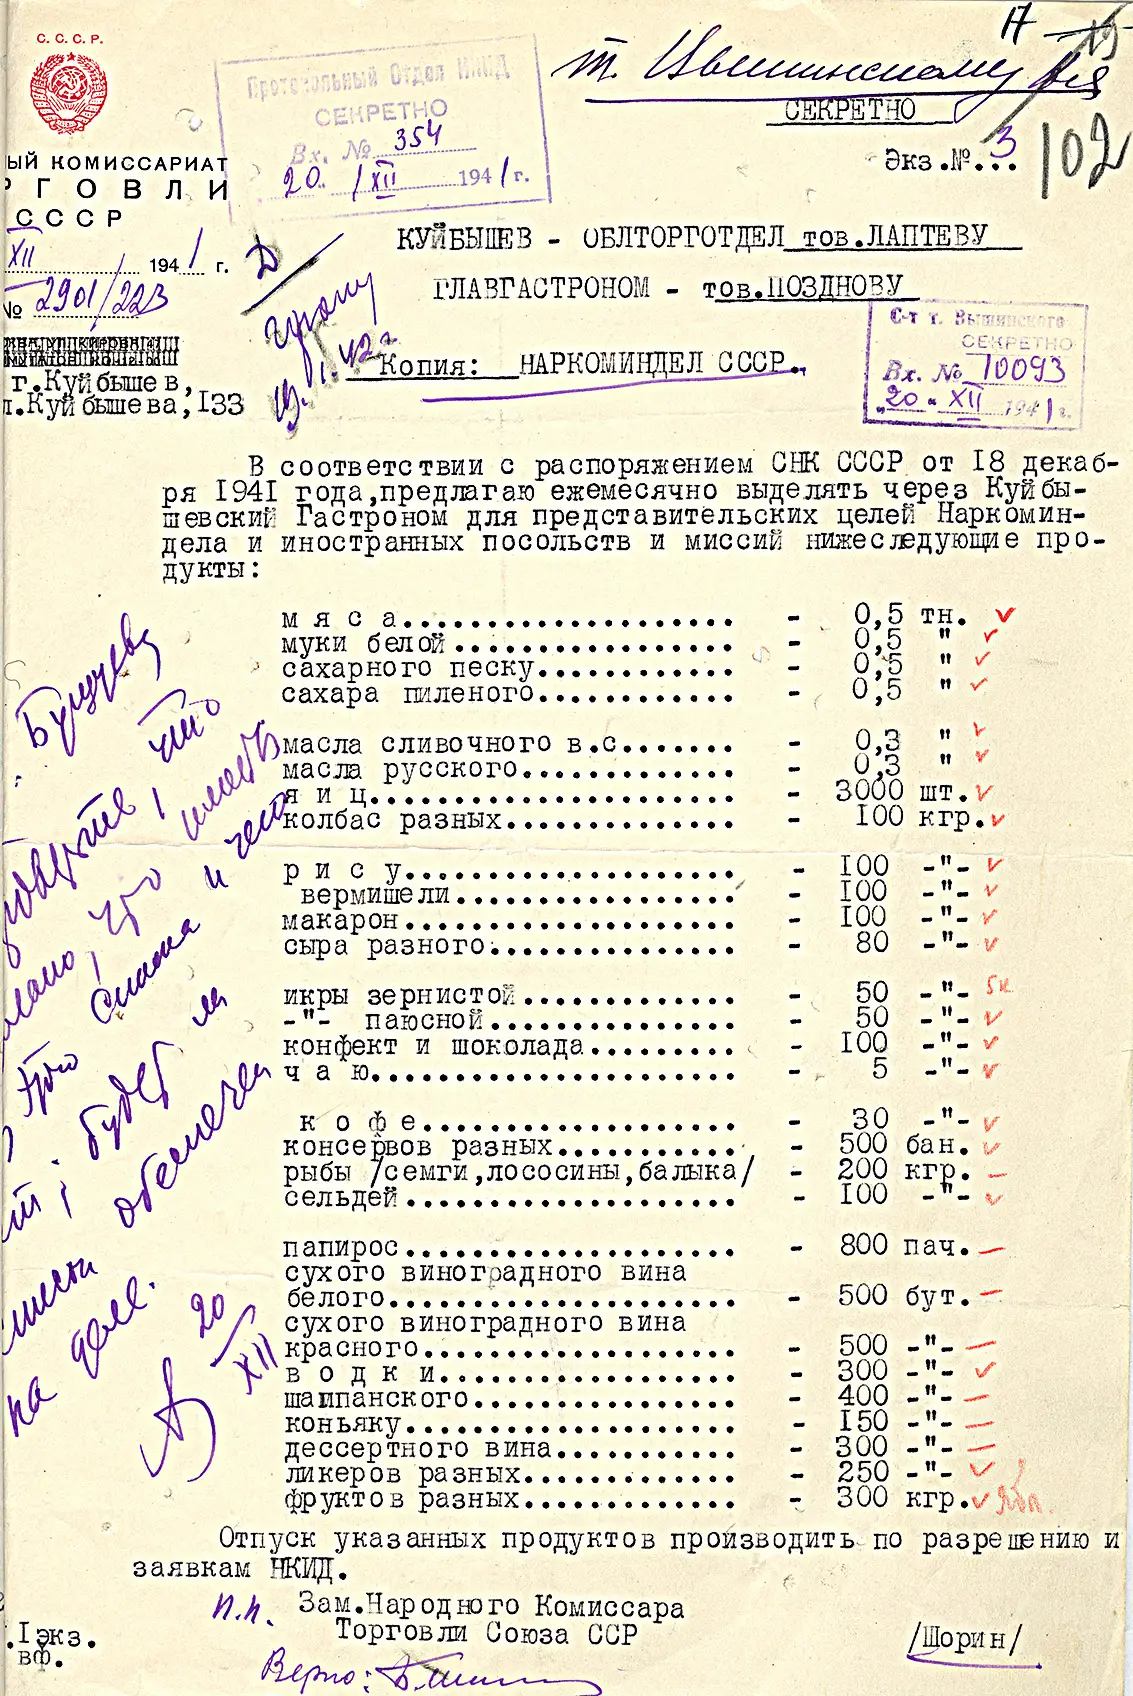 С. С. С. Р.
ЫЙ КОМИССАРИАТ
РГОВЛИ
СССР
XII 1941 г.
№ 2901/223
г.Куйбышев,
л.Куйбышева,133
Протокольный Отдел НКИД
СЕКРЕТНО
Вх. № 354
20 / XII 1941 г.
17
СЕКРЕТНО
Экз.№ 3...
102
КУЙБЫШЕВ - ОБЛТОРГОТДЕЛ тов.ЛАПТЕВУ
ГЛАВГАСТРОНОМ - тов.ПОЗДНОВУ
Копия: НАРКОМИНДЕЛ СССР.,
С-т т. Вышинского
СЕКРЕТНО
Вх. № 10093
"20" XII 1941 г.
19.1.42 г
В соответствии с распоряжением СНК СССР от 18 декаб-
ря 1941 года,предлагаю ежемесячно выделять через Куйбы-
шевский Гастроном для представительских целей Наркомин-
дела и иностранных посольств и миссий нижеследующие про-
дукты:
м я с а..................... - 0,5 тн.
муки белой.................. - 0,5 "
сахарного песку............. - 0,5 "
сахара пиленого............. - 0,5 "
масла сливочного в.с........ - 0,3 "
масла русского.............. - 0,3 "
я и ц....................... - 3000 шт.
колбас разных............... - 100 кгр.
р и с у..................... - 100 -"-
вермишели................... - 100 -"-
макарон..................... - 100 -"-
сыра разного................ - 80 -"-
икры зернистой.............. - 50 -"- 5к
-"- паюсной................. - 50 -"-
конфект и шоколада.......... - 100 -"-
ч а ю....................... - 5 -"-
к о ф е..................... - 30 -"-
консервов разных............ - 500 бан.
рыбы /семги,лососины,балыка/ - 200 кгр.
сельдей..................... - 100 -"-
папирос..................... - 800 пач.
сухого виноградного вина
белого...................... - 500 бут.
сухого виноградного вина
красного.................... - 500 -"-
в о д к и................... - 300 -"-
шампанского................. - 400 -"-
коньяку..................... - 150 -"-
дессертного вина............ - 300 -"-
ликеров разных.............. - 250 -"-
фруктов разных.............. - 300 кгр. Ябл.
что
иметь
и чего
будет ли
обеспечен
на деле.
20
XII
Отпуск указанных продуктов производить по разрешению и
заявкам НКИД.
п.п. Зам.Народного Комиссара
Торговли Союза ССР /Шорин/
.1экз.
вф.
Верно: